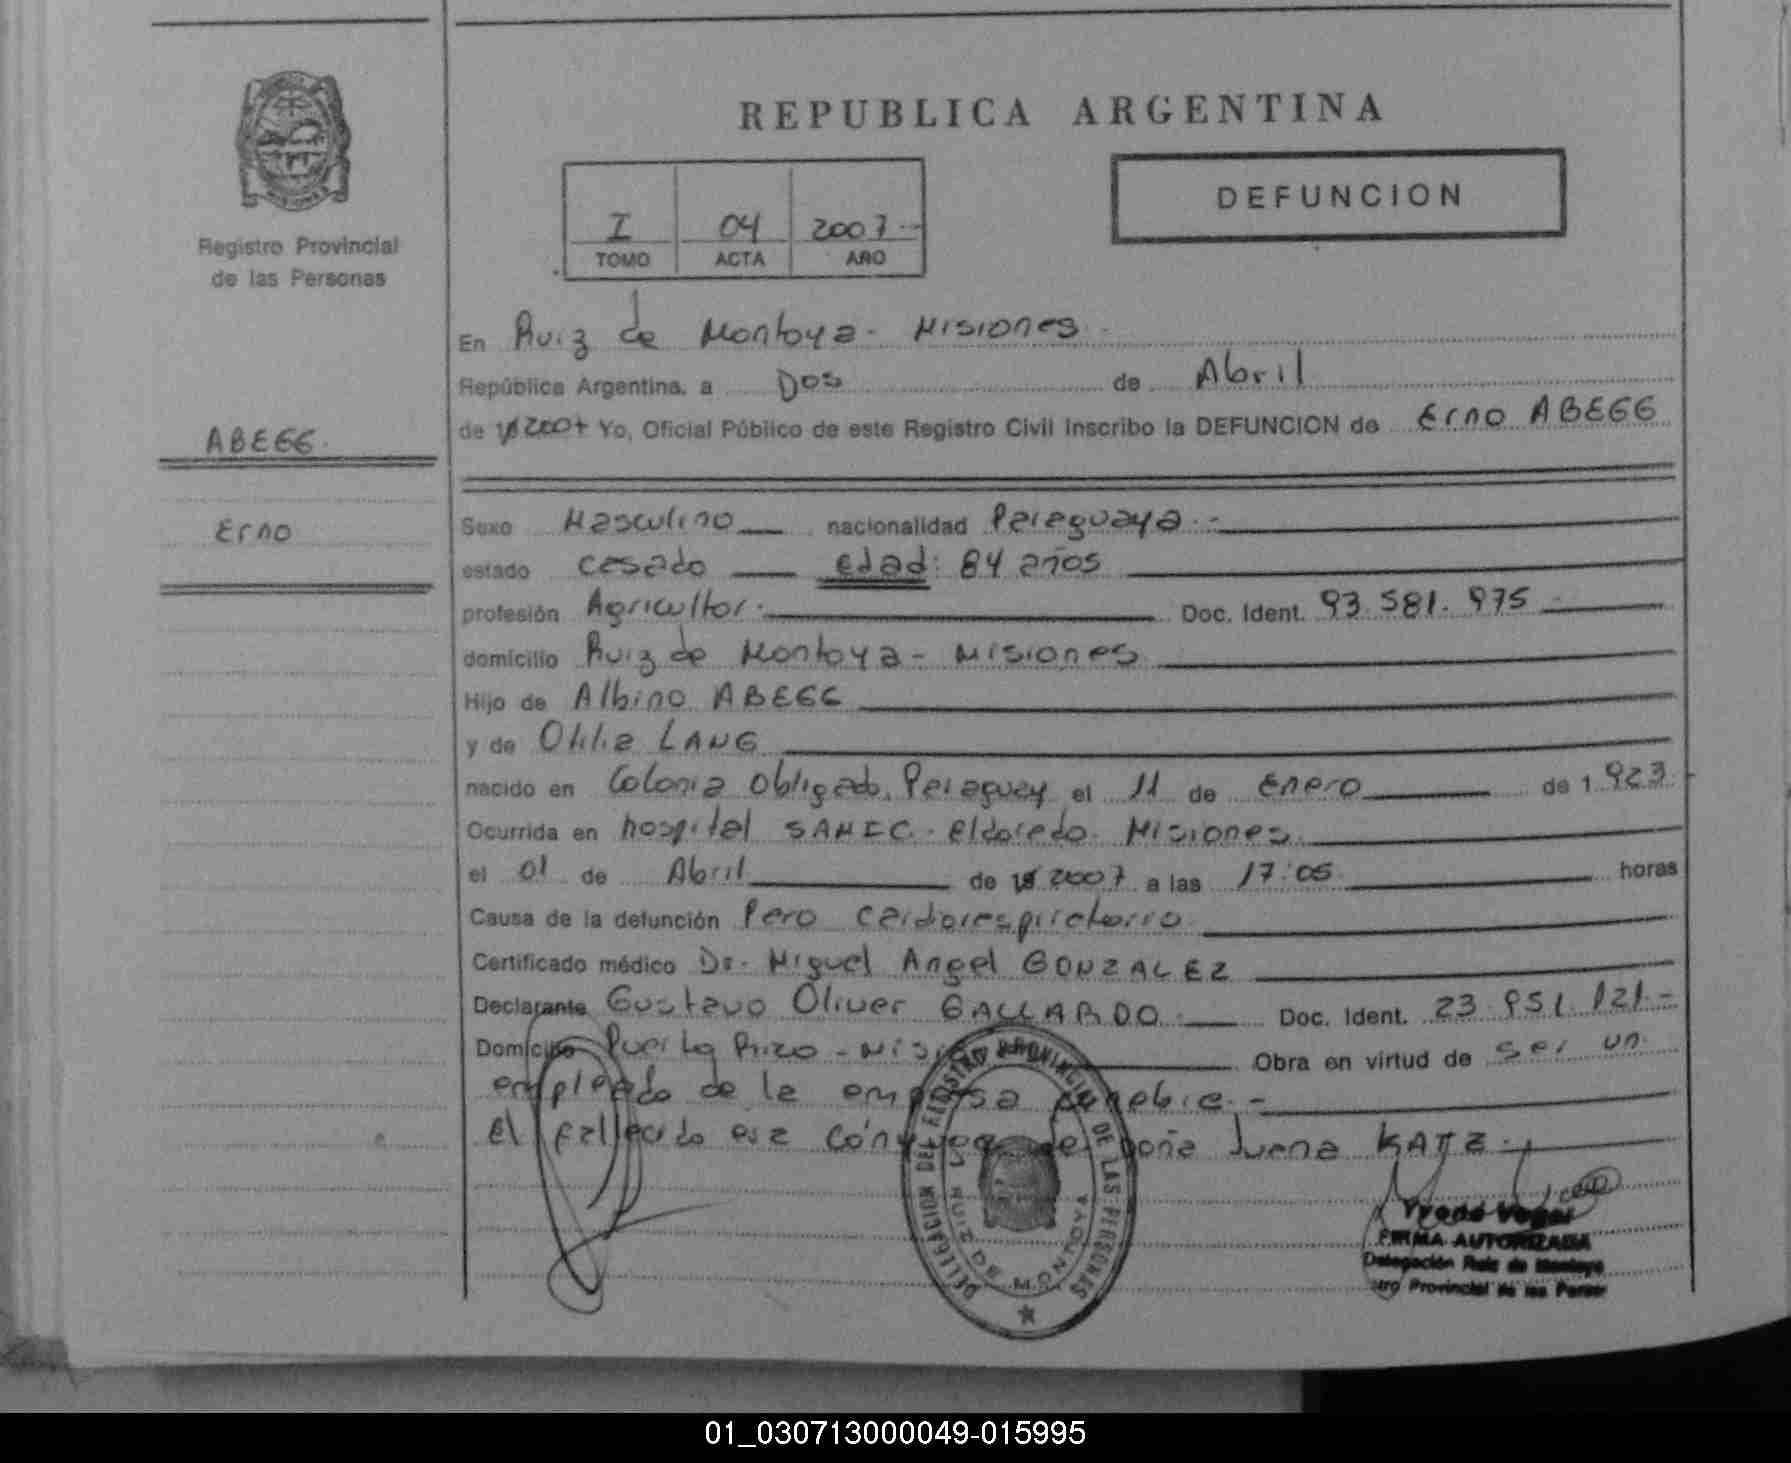 REPUBLICA ARGENTINA
DEFUNCION
I 04 2007
TOMO ACTA AÑO
Registro Provincial
de las Personas
ABEGG
Erno
En Ruiz de Montoya - Misiones
República Argentina, a Dos de Abril
de 2007 Yo, Oficial Público de este Registro Civil inscribo la DEFUNCION de Erno ABEGG
Sexo Masculino nacionalidad Paraguaya.-
estado casado edad: 84 años
profesión Agricultor. Doc. Ident. 93.581.975
domicilio Ruiz de Montoya - Misiones
Hijo de Albino ABEGG
y de Otilia LANG
nacido en Colonia Obligado, Paraguay el 11 de Enero de 1.923
Ocurrida en hospital SAMIC - Eldorado Misiones
el 01 de Abril de 2007 a las 17:05 horas
Causa de la defunción Paro cardiorespiratorio
Certificado médico Dr. Miguel Angel GONZALEZ
Declarante Gustavo Oliver GALLARDO Doc. Ident. 23.951.121.-
Domicilio Puerto Rico - Obra en virtud de ser un
empleado de la empresa funebre.-
El fallecido era cónyuge de doña Juana KATZ.
DELEGACION DEL REGISTRO PROVINCIAL DE LAS PERSONAS
RUIZ DE MONTOYA
FIRMA AUTORIZADA
Delegación Ruiz de Montoya
tro Provincial de las Person
01_030713000049-015995